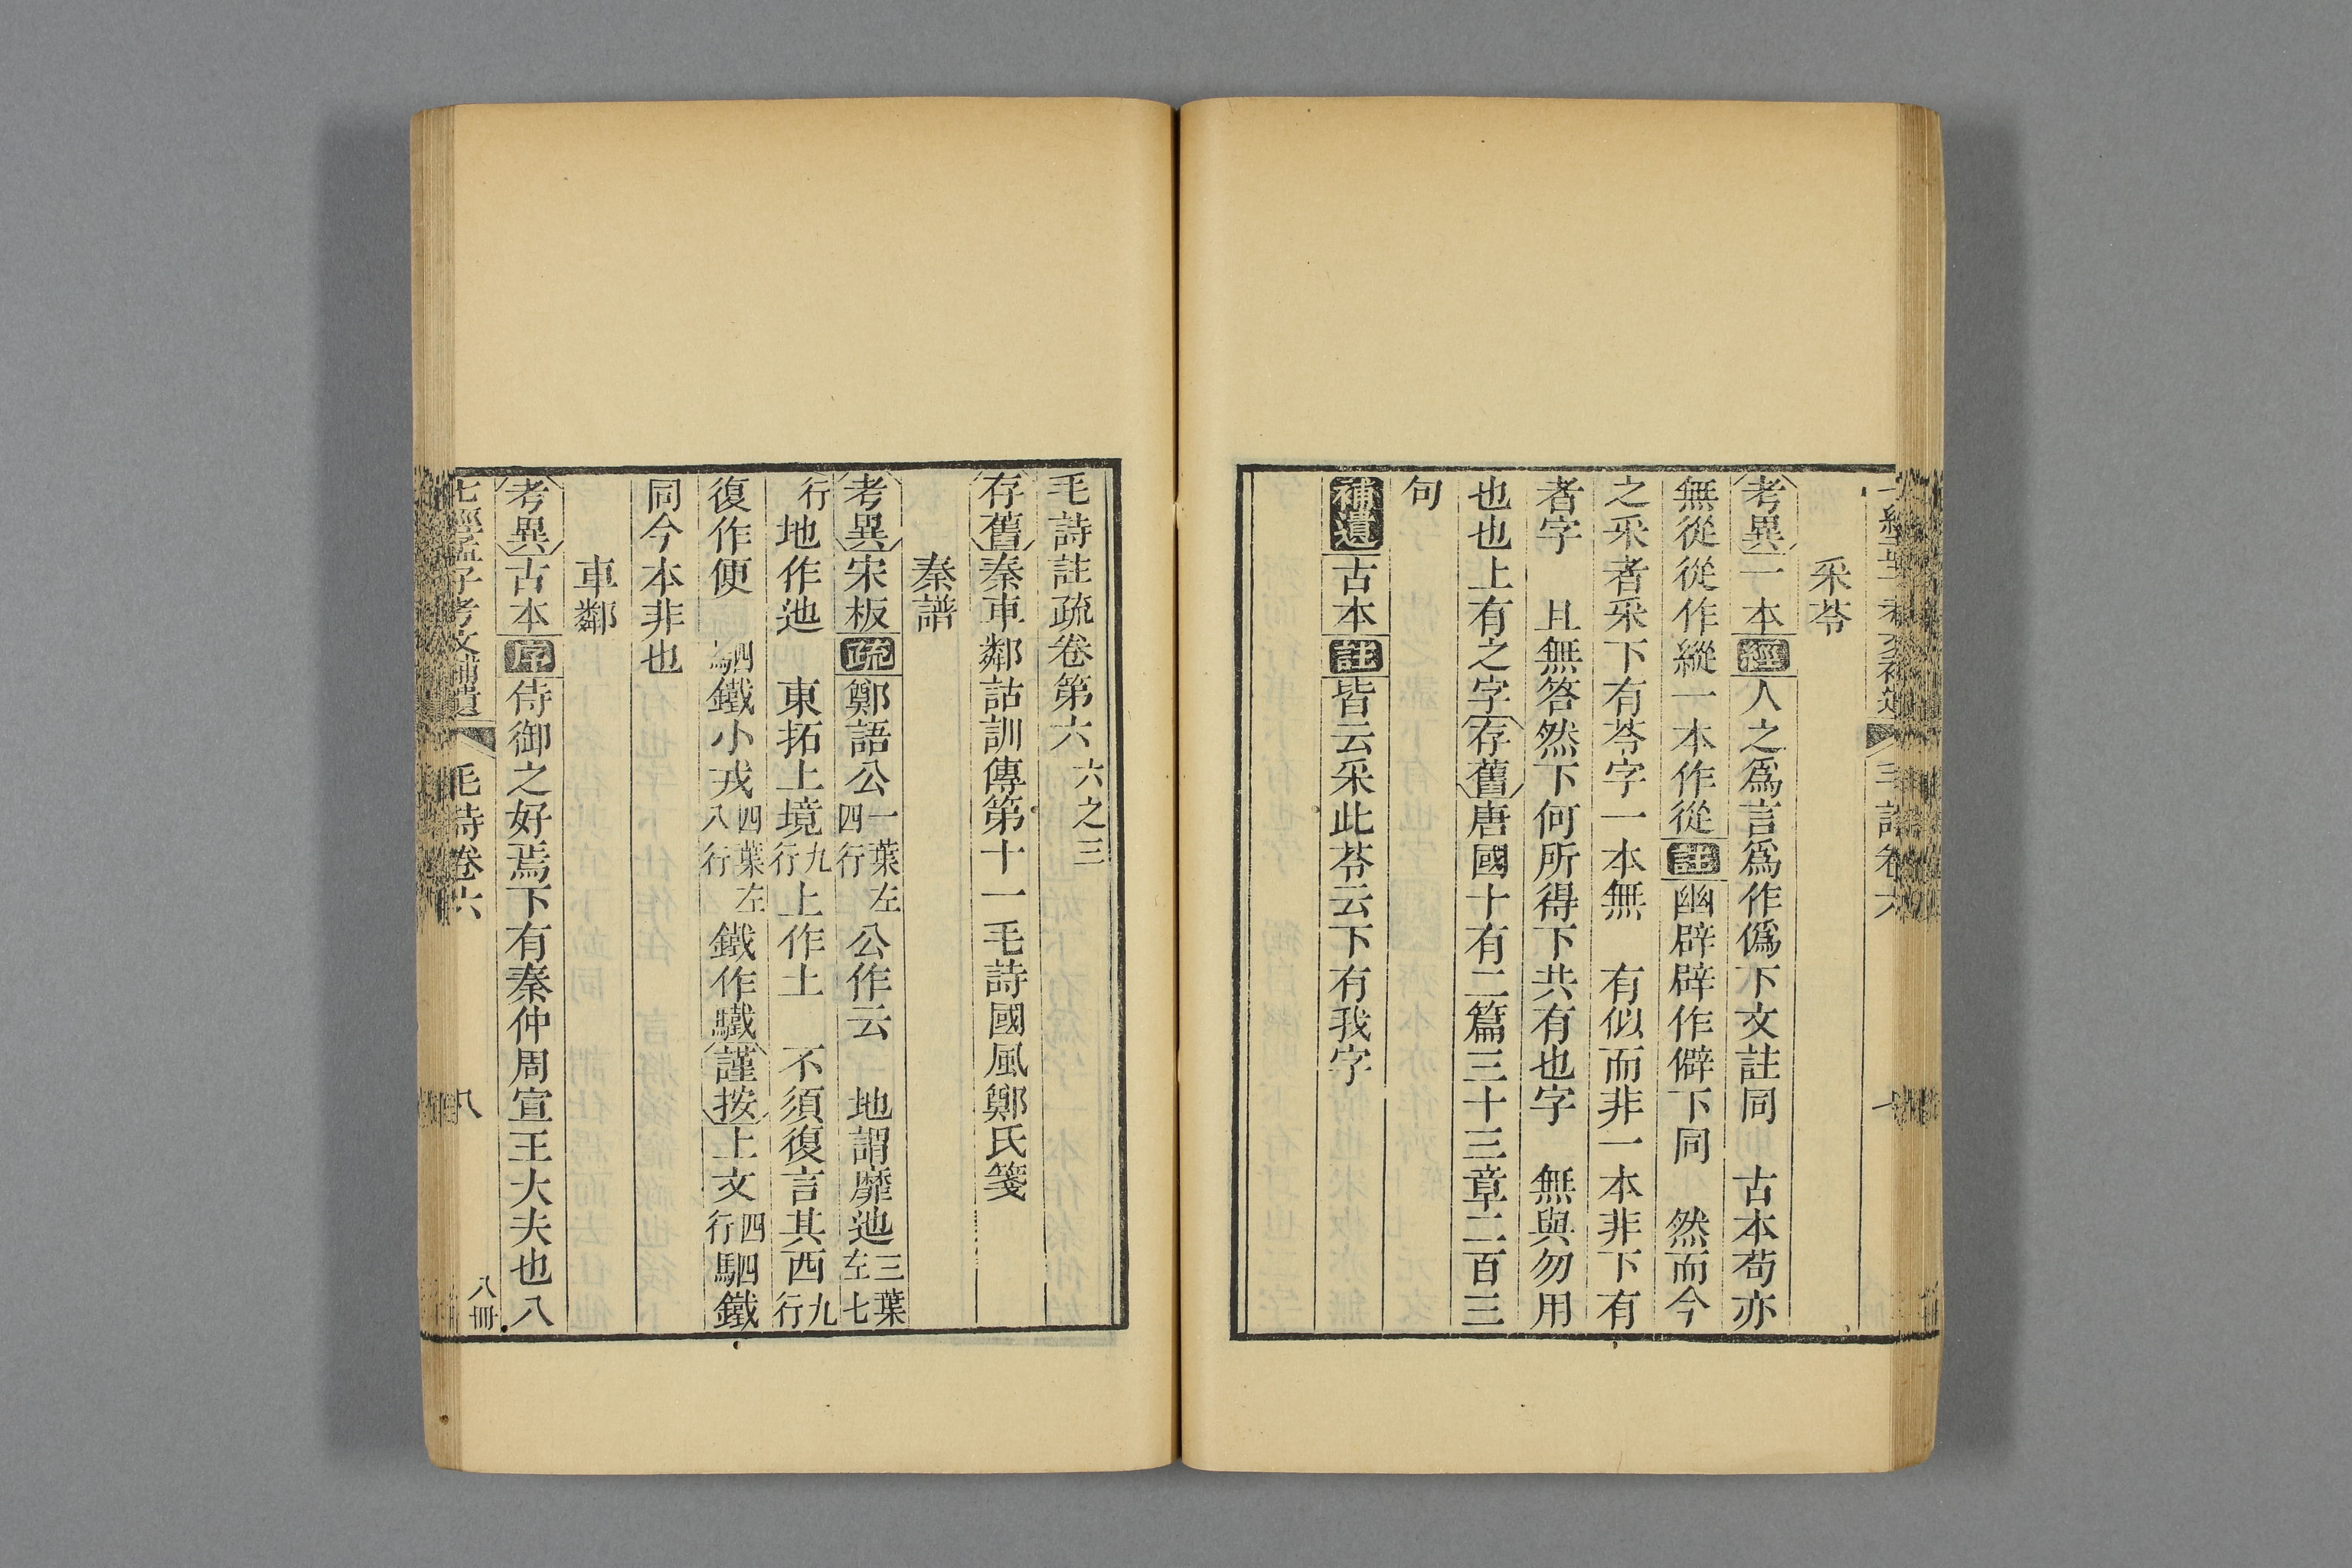 采苓
考異一本經人之爲言爲作僞下文註同　古本苟亦
無從從作縱一本作從註幽辟辟作僻下同　然而今
之采者采下有苓字一本無　有似而非一本非下有
者字　且無答然下何所得下共有也字　無與勿用
也也上有之字存舊唐國十有二篇三十三章二百三
句
補遺古本註皆云采此苓云下有我字
毛詩註疏卷第六 六之三
存舊秦車鄰詁訓傳第十一毛詩國風鄭氏箋
秦譜
考異宋板疏鄭語公一葉左四行公作云　地謂靡迆三葉左七
行地作迆　東拓上境九行上作土　不須復言其西九行
復作便　駟鐵小戎四葉左八行鐵作驖謹按上文四行駟鐵
同今本非也
車鄰
考異古本序侍御之好焉下有秦仲周宣王大夫也八
七經孟子考文補遺　毛詩卷六　八　八冊